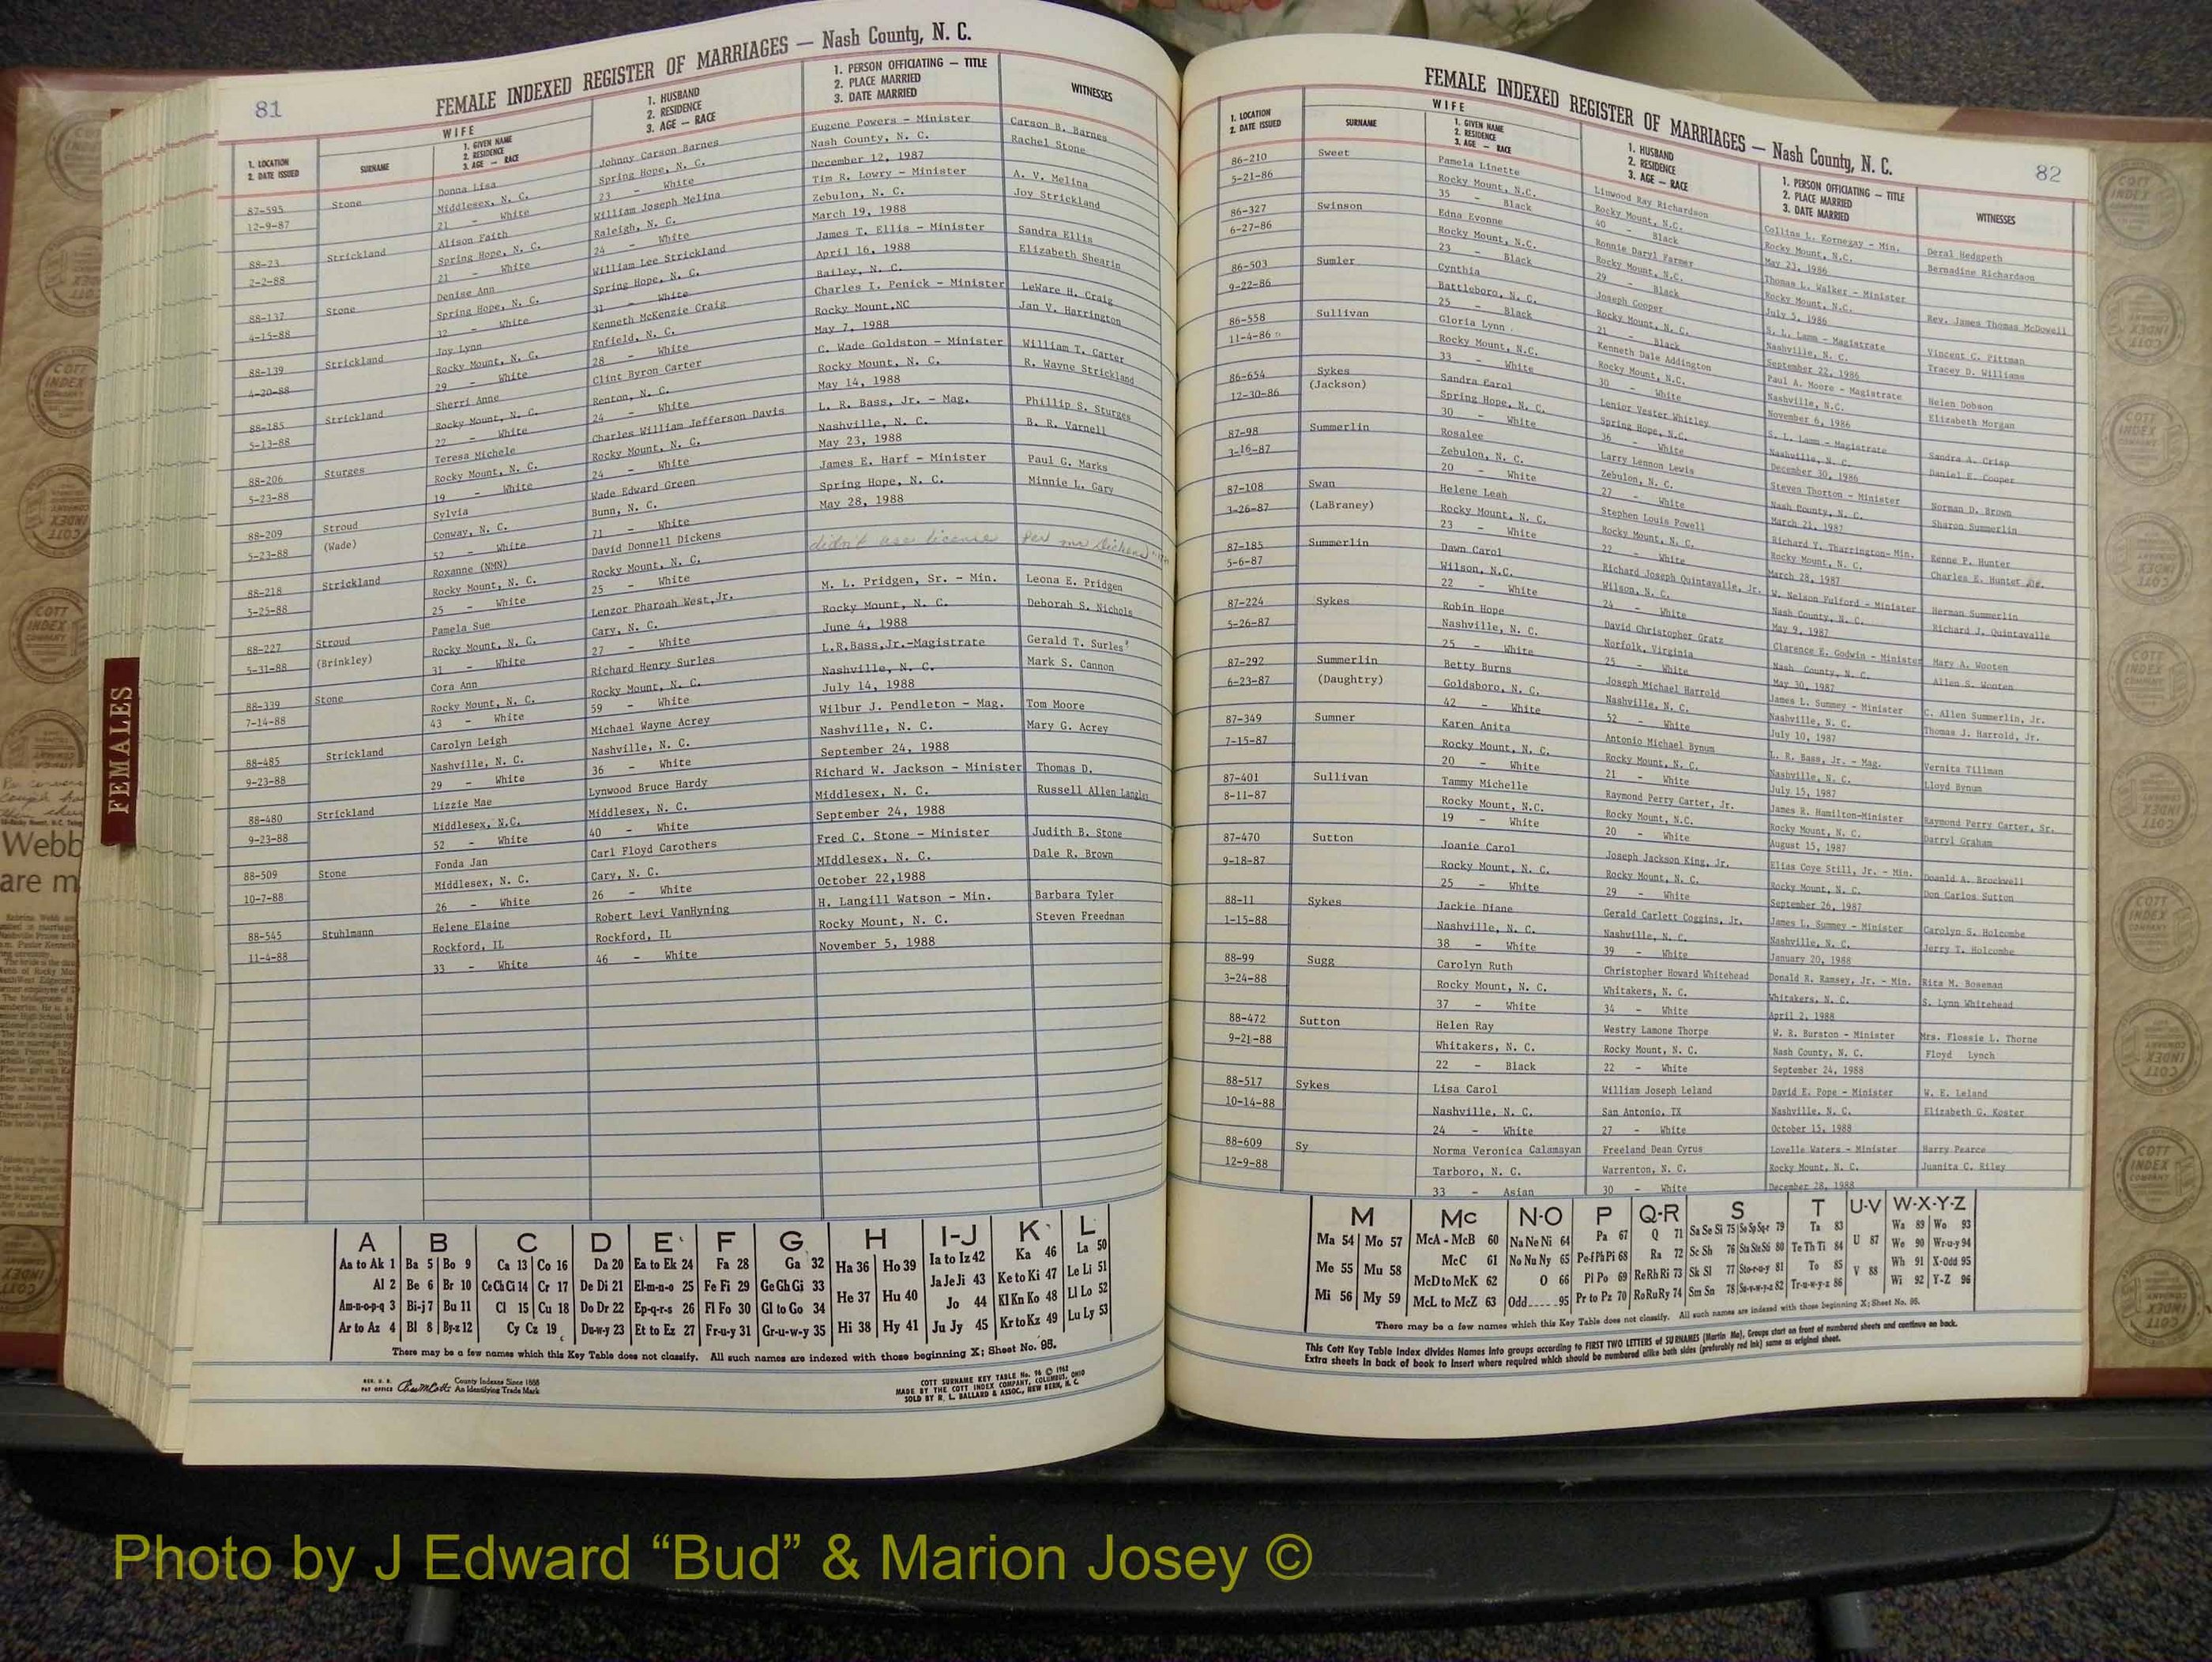 81
FEMALE INDEXED REGISTER OF MARRIAGES — Nash County, N. C.
1. LOCATION
2. DATE ISSUED
WIFE
SURNAME
1. GIVEN NAME
2. RESIDENCE
3. AGE — RACE
1. HUSBAND
2. RESIDENCE
3. AGE — RACE
1. PERSON OFFICIATING — TITLE
2. PLACE MARRIED
3. DATE MARRIED
WITNESSES
87-595 Stone Donna Lisa Johnny Carson Barnes Eugene Powers - Minister Carson B. Barnes
12-9-87 Middlesex, N. C. Spring Hope, N. C. Nash County, N. C. Rachel Stone
21 - White 23 - White December 12, 1987
88-23 Strickland Alison Faith William Joseph Melina Tim R. Lowry - Minister A. V. Melina
2-2-88 Spring Hope, N. C. Raleigh, N. C. Zebulon, N. C. Joy Strickland
21 - White 24 - White March 19, 1988
88-137 Stone Denise Ann William Lee Strickland James T. Ellis - Minister Sandra Ellis
4-15-88 Spring Hope, N. C. Spring Hope, N. C. April 16, 1988 Elizabeth Shearin
32 - White 31 - White Bailey, N. C.
88-139 Strickland Joy Lynn Kenneth McKenzie Craig Charles I. Penick - Minister LeWare H. Craig
4-20-88 Rocky Mount, N. C. Enfield, N. C. Rocky Mount,NC Jan V. Harrington
29 - White 28 - White May 7, 1988
88-185 Strickland Sherri Anne Clint Byron Carter C. Wade Goldston - Minister William T. Carter
5-13-88 Rocky Mount, N. C. Renton, N. C. Rocky Mount, N. C. R. Wayne Strickland
22 - White 24 - White May 14, 1988
88-206 Sturges Teresa Michele Charles William Jefferson Davis L. R. Bass, Jr. - Mag. Phillip S. Sturges
5-23-88 Rocky Mount, N. C. Rocky Mount, N. C. Nashville, N. C. B. R. Varnell
19 - White 24 - White May 23, 1988
88-209 Stroud Sylvia Wade Edward Green James E. Harf - Minister Paul G. Marks
5-23-88 (Wade) Conway, N. C. Bunn, N. C. Spring Hope, N. C. Minnie L. Gary
52 - White 71 - White May 28, 1988
88-218 Strickland Roxanne (NMN) David Donnell Dickens didn't use license Per
5-25-88 Rocky Mount, N. C. Rocky Mount, N. C.
25 - White 25 - White
88-227 Stroud Pamela Sue Lenzor Pharoah West,Jr. M. L. Pridgen, Sr. - Min. Leona E. Pridgen
5-31-88 (Brinkley) Rocky Mount, N. C. Cary, N. C. Rocky Mount, N. C. Deborah S. Nichols
31 - White 27 - White June 4, 1988
88-339 Stone Cora Ann Richard Henry Surles L.R.Bass,Jr.-Magistrate Gerald T. Surles
7-14-88 Rocky Mount, N. C. Rocky Mount, N. C. Nashville, N. C. Mark S. Cannon
43 - White 59 - White July 14, 1988
88-485 Strickland Carolyn Leigh Michael Wayne Acrey Wilbur J. Pendleton - Mag. Tom Moore
9-23-88 Nashville, N. C. Nashville, N. C. Nashville, N. C. Mary G. Acrey
29 - White 36 - White September 24, 1988
88-480 Strickland Lizzie Mae Lynwood Bruce Hardy Richard W. Jackson - Minister Thomas D.
9-23-88 Middlesex, N.C. Middlesex, N. C. Middlesex, N. C. Russell Allen Langley
52 - White 40 - White September 24, 1988
88-509 Stone Fonda Jan Carl Floyd Carothers Fred C. Stone - Minister Judith B. Stone
10-7-88 Middlesex, N. C. Cary, N. C. MIddlesex, N. C. Dale R. Brown
26 - White 26 - White October 22,1988
88-545 Stuhlmann Helene Elaine Robert Levi VanHyning H. Langill Watson - Min. Barbara Tyler
11-4-88 Rockford, IL Rockford, IL Rocky Mount, N. C. Steven Freedman
33 - White 46 - White November 5, 1988
A B C D E F G H I-J K L
Aa to Ak 1 Ba 5 Bo 9 Ca 13 Co 16 Da 20 Ea to Ek 24 Fa 28 Ga 32 Ha 36 Ho 39 Ia to Iz 42 Ka 46 La 50
Al 2 Be 6 Br 10 Ce Ch Ci 14 Cr 17 De Di 21 El-m-n-o 25 Fe Fi 29 Ge Gh Gi 33 He 37 Hu 40 Ja Je Ji 43 Ke to Ki 47 Le Li 51
Am-n-o-p-q 3 Bi-j 7 Bu 11 Cl 15 Cu 18 Do Dr 22 Ep-q-r-s 26 Fl Fo 30 Gl to Go 34 Hi 38 Hy 41 Jo 44 Kl Kn Ko 48 Ll Lo 52
Ar to Az 4 Bl 8 By-z 12 Cy Cz 19 Du-w-y 23 Et to Ez 27 Fr-u-y 31 Gr-u-w-y 35 Ju Jy 45 Kr to Kz 49 Lu Ly 53
There may be a few names which this Key Table does not classify. All such names are indexed with those beginning X; Sheet No. 95.
REG. U. S. PAT OFFICE County Indexes Since 1888 An Identifying Trade Mark
COTT SURNAME KEY TABLE No. 96 © 1962
MADE BY THE COTT INDEX COMPANY, COLUMBUS, OHIO
SOLD BY R. L. BALLARD & ASSOC., NEW BERN, N. C.
FEMALE INDEXED REGISTER OF MARRIAGES — Nash County, N. C.
82
1. LOCATION
2. DATE ISSUED
WIFE
SURNAME
1. GIVEN NAME
2. RESIDENCE
3. AGE — RACE
1. HUSBAND
2. RESIDENCE
3. AGE — RACE
1. PERSON OFFICIATING — TITLE
2. PLACE MARRIED
3. DATE MARRIED
WITNESSES
86-210 Sweet Pamela Linette Linwood Ray Richardson Collins L. Kornegay - Min. Deral Hedgpeth
5-21-86 Rocky Mount, N.C. Rocky Mount, N.C. Rocky Mount, N.C. Bernadine Richardson
35 - Black 40 - Black May 23, 1986
86-327 Swinson Edna Evonne Ronnie Daryl Farmer Thomas L. Walker - Minister Rev. James Thomas McDowell
6-27-86 Rocky Mount, N.C. Rocky Mount, N.C. Rocky Mount, N.C.
23 - Black 29 - Black July 5, 1986
86-503 Sumler Cynthia Joseph Cooper S. L. Lamm - Magistrate Vincent C. Pittman
9-22-86 Battleboro, N. C. Rocky Mount, N. C. Nashville, N. C. Tracey D. Williams
25 - Black 21 - Black September 22, 1986
86-558 Sullivan Gloria Lynn Kenneth Dale Addington Paul A. Moore - Magistrate Helen Dobson
11-4-86 Rocky Mount, N.C. Rocky Mount, N.C. Nashville, N.C. Elizabeth Morgan
33 - White 30 - White November 6, 1986
86-654 Sykes Sandra Carol Lenior Vester Whitley S. L. Lamm - Magistrate Sandra A. Crisp
12-30-86 (Jackson) Spring Hope, N. C. Spring Hope, N.C. Nashville, N. C. Daniel E. Cooper
30 - White 36 - White December 30, 1986
87-98 Summerlin Rosalee Larry Lennon Lewis Steven Thorton - Minister Norman D. Brown
3-16-87 Zebulon, N. C. Zebulon, N. C. Nash County, N. C. Sharon Summerlin
20 - White 27 - White March 21, 1987
87-108 Swan Helene Leah Stephen Louis Powell Richard Y. Tharrington- Min. Renne P. Hunter
3-26-87 (LaBraney) Rocky Mount, N. C. Rocky Mount, N. C. Rocky Mount, N. C. Charles E. Hunter Jr.
23 - White 22 - White March 28, 1987
87-185 Summerlin Dawn Carol Richard Joseph Quintavalle, Jr. W. Nelson Fulford - Minister Herman Summerlin
5-6-87 Wilson, N.C. Wilson, N. C. Nash County, N. C. Richard J. Quintavalle
22 - White 24 - White May 9, 1987
87-224 Sykes Robin Hope David Christopher Gratz Clarence E. Godwin - Minister Mary A. Wooten
5-26-87 Nashville, N. C. Norfolk, Virginia Nash County, N. C. Allen S. Wooten
25 - White 25 - White May 30, 1987
87-292 Summerlin Betty Burns Joseph Michael Harrold James L. Summey - Minister C. Allen Summerlin, Jr.
6-23-87 (Daughtry) Goldsboro, N. C. Nashville, N. C. Nashville, N. C. Thomas J. Harrold, Jr.
42 - White 52 - White July 10, 1987
87-349 Sumner Karen Anita Antonio Michael Bynum L. R. Bass, Jr. - Mag. Vernita Tillman
7-15-87 Rocky Mount, N. C. Rocky Mount, N. C. Nashville, N. C. Lloyd Bynum
20 - White 21 - White July 15, 1987
87-401 Sullivan Tammy Michelle Raymond Perry Carter, Jr. James R. Hamilton-Minister Raymond Perry Carter, Sr.
8-11-87 Rocky Mount, N.C. Rocky Mount, N.C. Rocky Mount, N. C. Darryl Graham
19 - White 20 - White August 15, 1987
87-470 Sutton Joanie Carol Joseph Jackson King, Jr. Elias Coye Still, Jr. - Min. Doanld A. Brockwell
9-18-87 Rocky Mount, N. C. Rocky Mount, N. C. Rocky Mount, N. C. Don Carlos Sutton
25 - White 29 - White September 26, 1987
88-11 Sykes Jackie Diane Gerald Carlett Coggins, Jr. James L. Summey - Minister Carolyn S. Holcombe
1-15-88 Nashville, N. C. Nashville, N. C. Nashville, N. C. Jerry T. Holcombe
38 - White 39 - White January 20, 1988
88-99 Sugg Carolyn Ruth Christopher Howard Whitehead Donald R. Ramsey, Jr. - Min. Rita M. Boseman
3-24-88 Rocky Mount, N. C. Whitakers, N. C. Whitakers, N. C. S. Lynn Whitehead
37 - White 34 - White April 2, 1988
88-472 Sutton Helen Ray Westry Lamone Thorpe W. R. Burston - Minister Mrs. Flossie L. Thorne
9-21-88 Whitakers, N. C. Rocky Mount, N. C. Nash County, N. C. Floyd Lynch
22 - Black 22 - White September 24, 1988
88-517 Sykes Lisa Carol William Joseph Leland David E. Pope - Minister W. E. Leland
10-14-88 Nashville, N. C. San Antonio, TX Nashville, N. C. Elizabeth G. Koster
24 - White 27 - White October 15, 1988
88-609 Sy Norma Veronica Calamayan Freeland Dean Cyrus Lovelle Waters - Minister Harry Pearce
12-9-88 Tarboro, N. C. Warrenton, N. C. Rocky Mount, N. C. Juanita C. Riley
33 - Asian 30 - White December 28, 1988
M Mc N-O P Q-R S T U-V W-X-Y-Z
Ma 54 Mo 57 McA - McB 60 Na Ne Ni 64 Pa 67 Q 71 Sa Se Si 75 So Sp Sq-r 79 Ta 83 U 87 Wa 89 Wo 93
Me 55 Mu 58 McC 61 No Nu Ny 65 Pe-f Ph Pi 68 Ra 72 Sc Sh 76 Sta Ste Sti 80 Te Th Ti 84 V 88 We 90 Wr-u-y 94
Mi 56 My 59 McD to McK 62 O 66 Pl Po 69 Re Rh Ri 73 Sk Sl 77 Sto-r-u-y 81 To 85 Wh 91 X-Odd 95
McL to McZ 63 Odd.....95 Pr to Pz 70 Ro Ru Ry 74 Sm Sn 78 Su-v-w-y-z 82 Tr-u-w-y-z 86 Wi 92 Y-Z 96
There may be a few names which this Key Table does not classify. All such names are indexed with those beginning X; Sheet No. 95.
This Cott Key Table Index divides Names into groups according to FIRST TWO LETTERS of SURNAMES (Martin Ma). Groups start on front of numbered sheets and continue on back.
Extra sheets in back of book to insert where required which should be numbered alike both sides (preferably red ink) same as original sheet.
FEMALES
Webb
are m
COTT INDEX COMPANY
Photo by J Edward “Bud” & Marion Josey ©